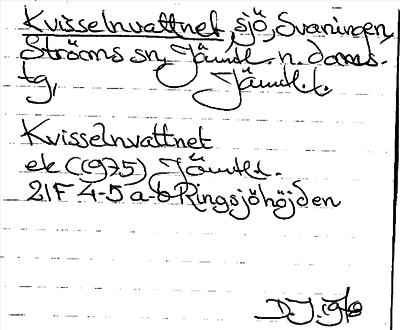 Kvisselnvattnet, sjö, Svaningen,
Ströms sn, Jämtl. n. doms.
tg, Jämtl. l.
Kvisselnvattnet
ek (1975) Jämtl l.
21F 4-5 a-b Ringsjöhöjden
D.J.